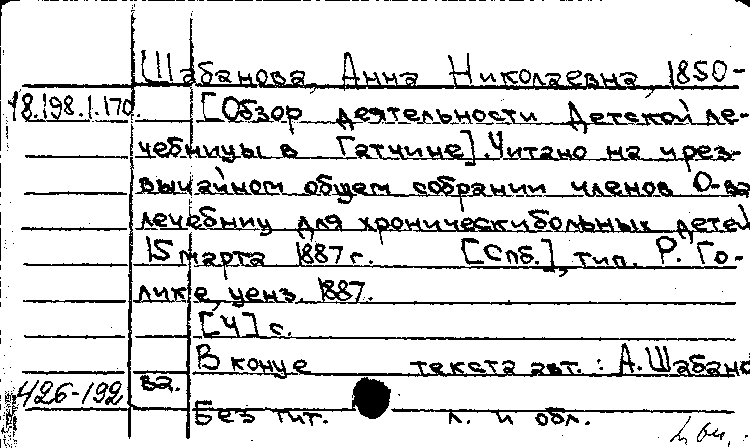 Шабанова, Анна Николаевна, 1850-
18.198.1.170. [Обзор деятельности Детской ле-
чебницы в Гатчине]. Читано на чрез-
вычайном общем собрании членов О-ва
лечебниц для хроническибольных детей
15 марта 1887 г. [Спб.], тип. Р. Го-
лике, ценз. 1887.
[4] с.
В конце текста авт.: А. Шабано
ва.
426-192
Без тит. л. и обл.